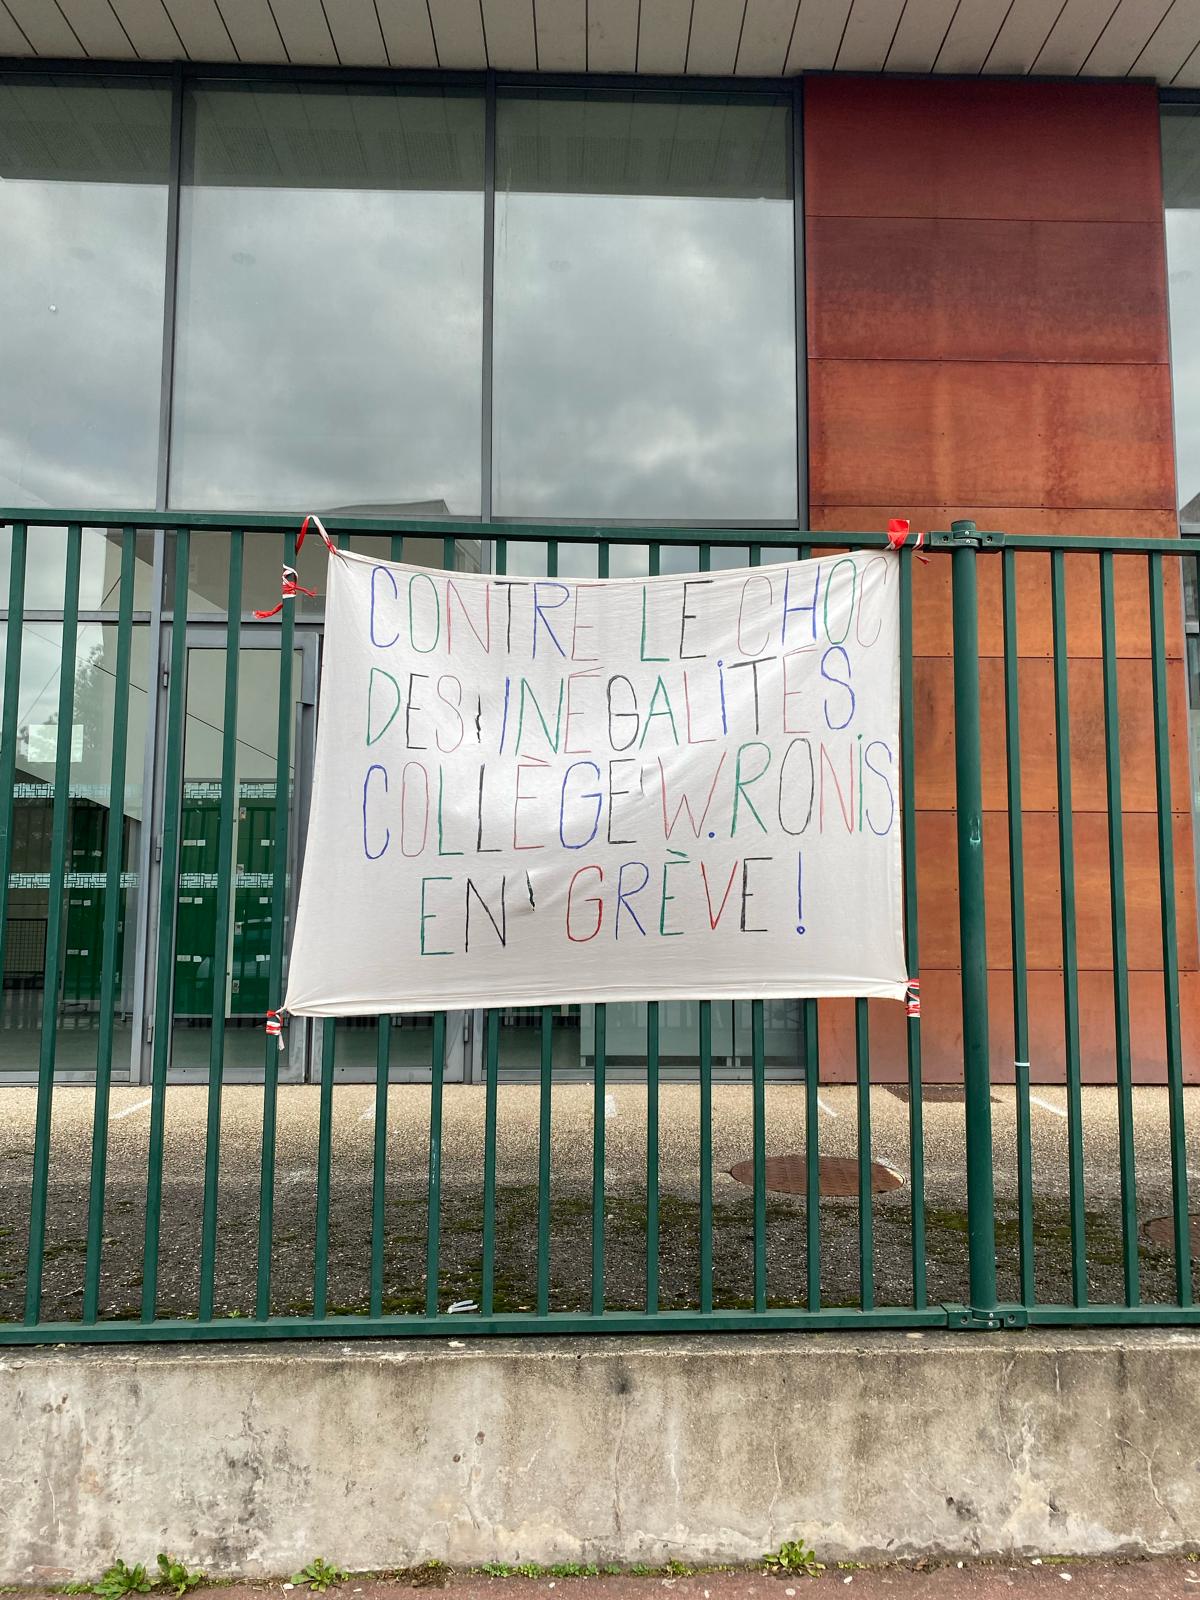 CONTRE LE CHOC
DES INÉGALITÉS
COLLÈGE W. RONIS
EN GRÈVE !